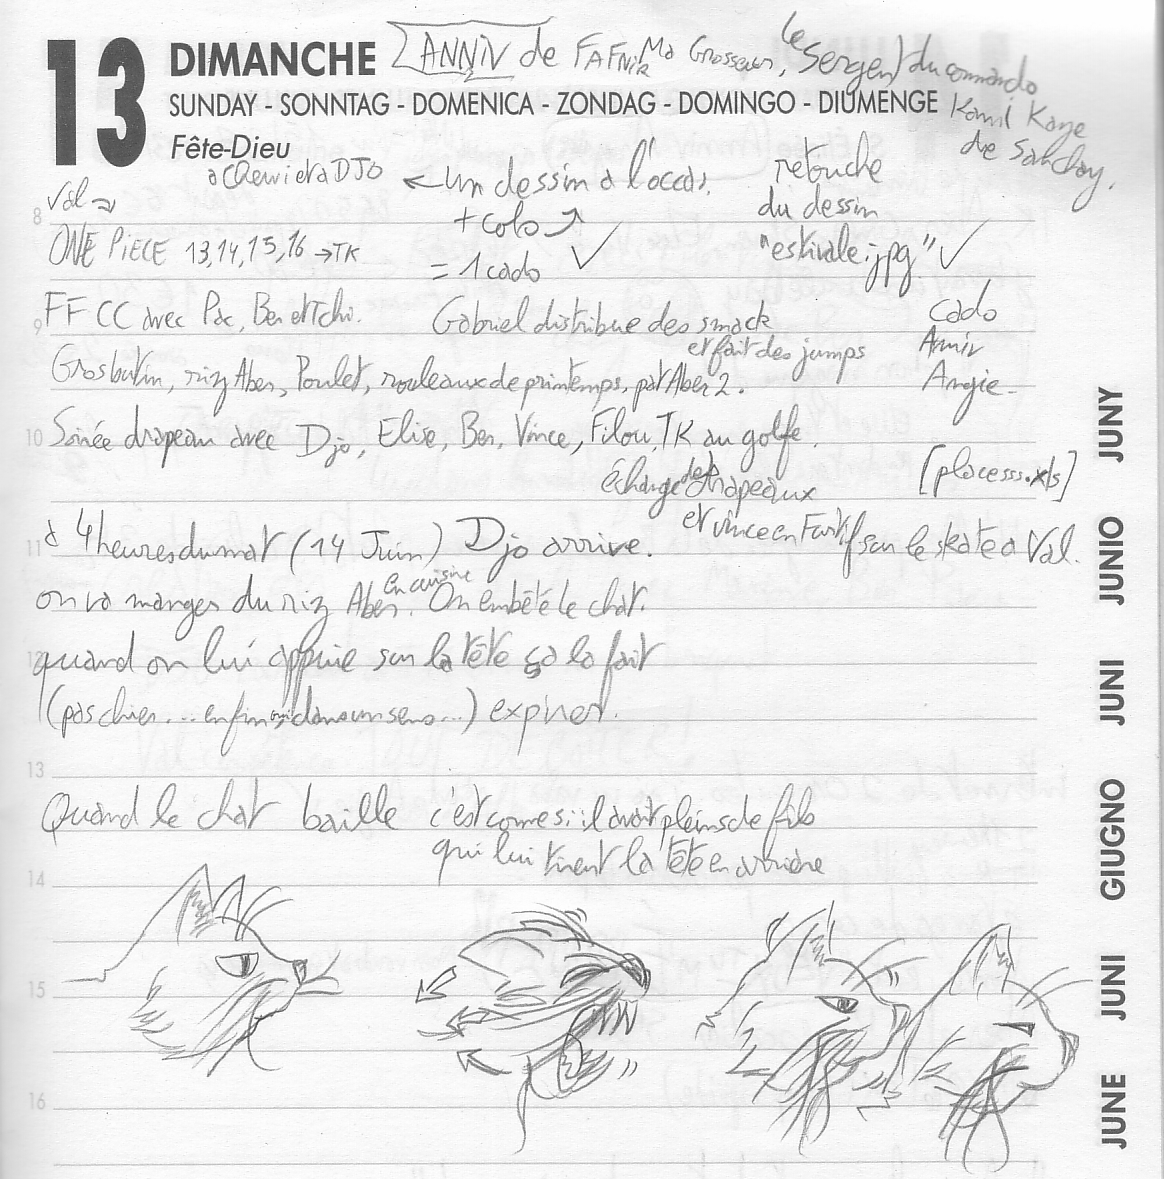 13 DIMANCHE
ANNIV de FAFNiR Ma Grosseur, le Sergent du commando
SUNDAY - SONNTAG - DOMENICA - ZONDAG - DOMINGO - DIUMENGE
Kami Kaze
de Sanclay.
Fête-Dieu
à Chewie et à DJO ← Un dessin à l'occas. retouche
Val
8
+ colo du dessin
ONE PIECE 13,14,15,16 → TK
= 1 cado ✓ "estivale.jpg" ✓
FF CC avec Pac, Ben et Tchi. Gabriel distribue des smack cado
9
et fait des jumps Anniv
Grosbutin, riz Aben, Poulet, rouleaux de printemps, par Aben 2. Angie
10 Soirée drapeau avec Djo, Elise, Ben, Vince, Filou, TK au golfe.
échange des drapeaux [placesss.xls]
et vince en Furtif sur le skate à Val.
11 à 4 heures du mat (14 Juin) Djo arrive.
en cuisine
on va manger du riz Aben. On embêté le chat.
12 quand on lui appuie sur la tête ça la fait
(pas chier... enfin, dans un sens...) expirer.
13
Quand le chat baille c'est comme si il avait pleins de fils
qui lui tirent la tête en arrière
14
15
16
JUNE JUNI GIUGNO JUNI JUNIO JUNY